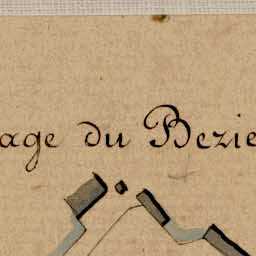 age du Bezie